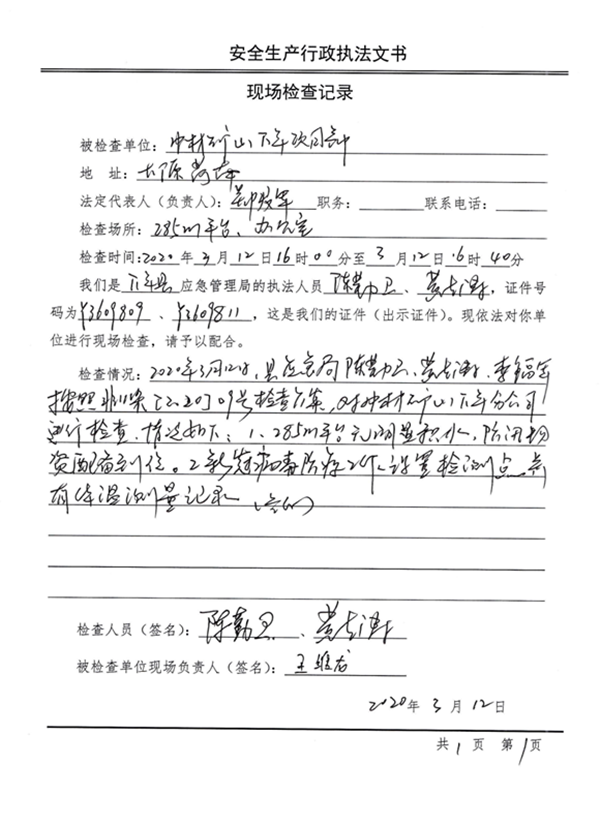 安全生产行政执法文书
现场检查记录
被检查单位：中材矿山上犹分公司
地 址：
法定代表人（负责人）： 职务： 联系电话：
检查场所：285m平台、办公室
检查时间：2020年3月12日16时00分至3月12日16时40分
我们是 县应急管理局的执法人员陈勤卫、黄 ，证件号
码为Y3609809、Y3609811，这是我们的证件（出示证件）。现依法对你单
位进行现场检查，请予以配合。
检查情况：2020年3月12日，县应急局陈勤卫、黄 、李
按照 [2020]09号检查方案，对中材矿山 分公司
进行检查，情况如下：1、285m平台无明显积水，防汛物
资配备到位。2、新冠病毒防疫工作，设置检测点，
有体温测量记录。
检查人员（签名）：陈勤卫、黄
被检查单位现场负责人（签名）：王 龙
2020年3月12日
共1页 第1页